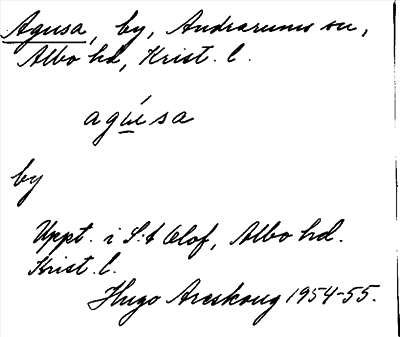 Agusa, by, Andrarums sn,
Albo hd, Krist. l.
agúsa
by
Uppt. i S:t Olof, Albo hd.
Krist. l.
Hugo Areskoug 1954-55.